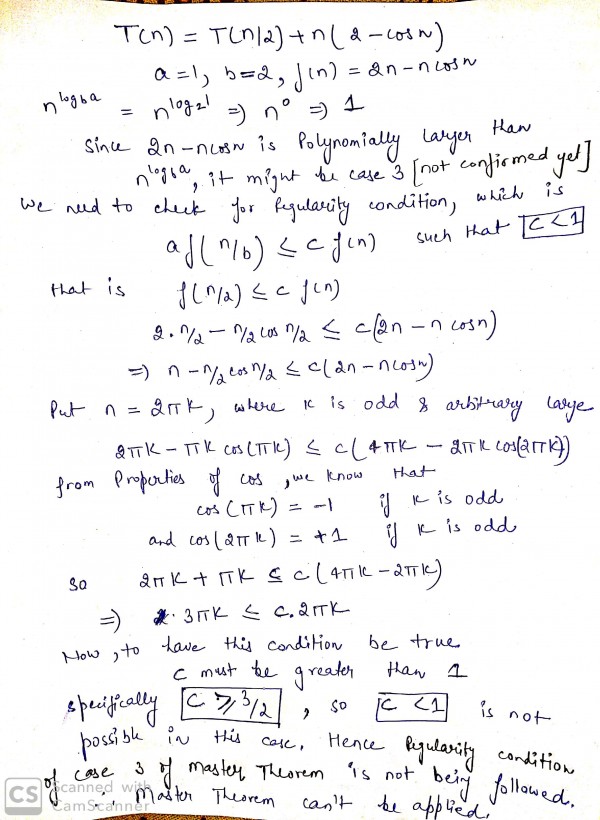 T(n) = T(n/2) + n(2 - cosn)
a = 1, b = 2, f(n) = 2n - n cosn
n^log_b a = n^log_2 1 ⇒ n^0 ⇒ 1
Since 2n - ncosn is Polynomially larger than
n^log_b a, it might be case 3 [not confirmed yet]
we need to check for Regularity condition, which is
a f(n/b) ≤ c f(n) such that c < 1
that is f(n/2) ≤ c f(n)
2.n/2 - n/2 cos n/2 ≤ c(2n - n cosn)
⇒ n - n/2 cos n/2 ≤ c(2n - ncosn)
Put n = 2πk, where k is odd & arbitrary large
2πk - πk cos(πk) ≤ c(4πk - 2πk cos(2πk))
from Properties of cos, we know that
cos(πk) = -1 if k is odd
and cos(2πk) = +1 if k is odd
So 2πk + πk ≤ c(4πk - 2πk)
⇒ 3πk ≤ c.2πk
Now, to have this condition be true
c must be greater than 1
specifically c ≥ 3/2, so c < 1 is not
possible in this case. Hence Regularity condition
of case 3 of master Theorem is not being followed.
∴ Master Theorem can't be applied.
CS Scanned with
CamScanner